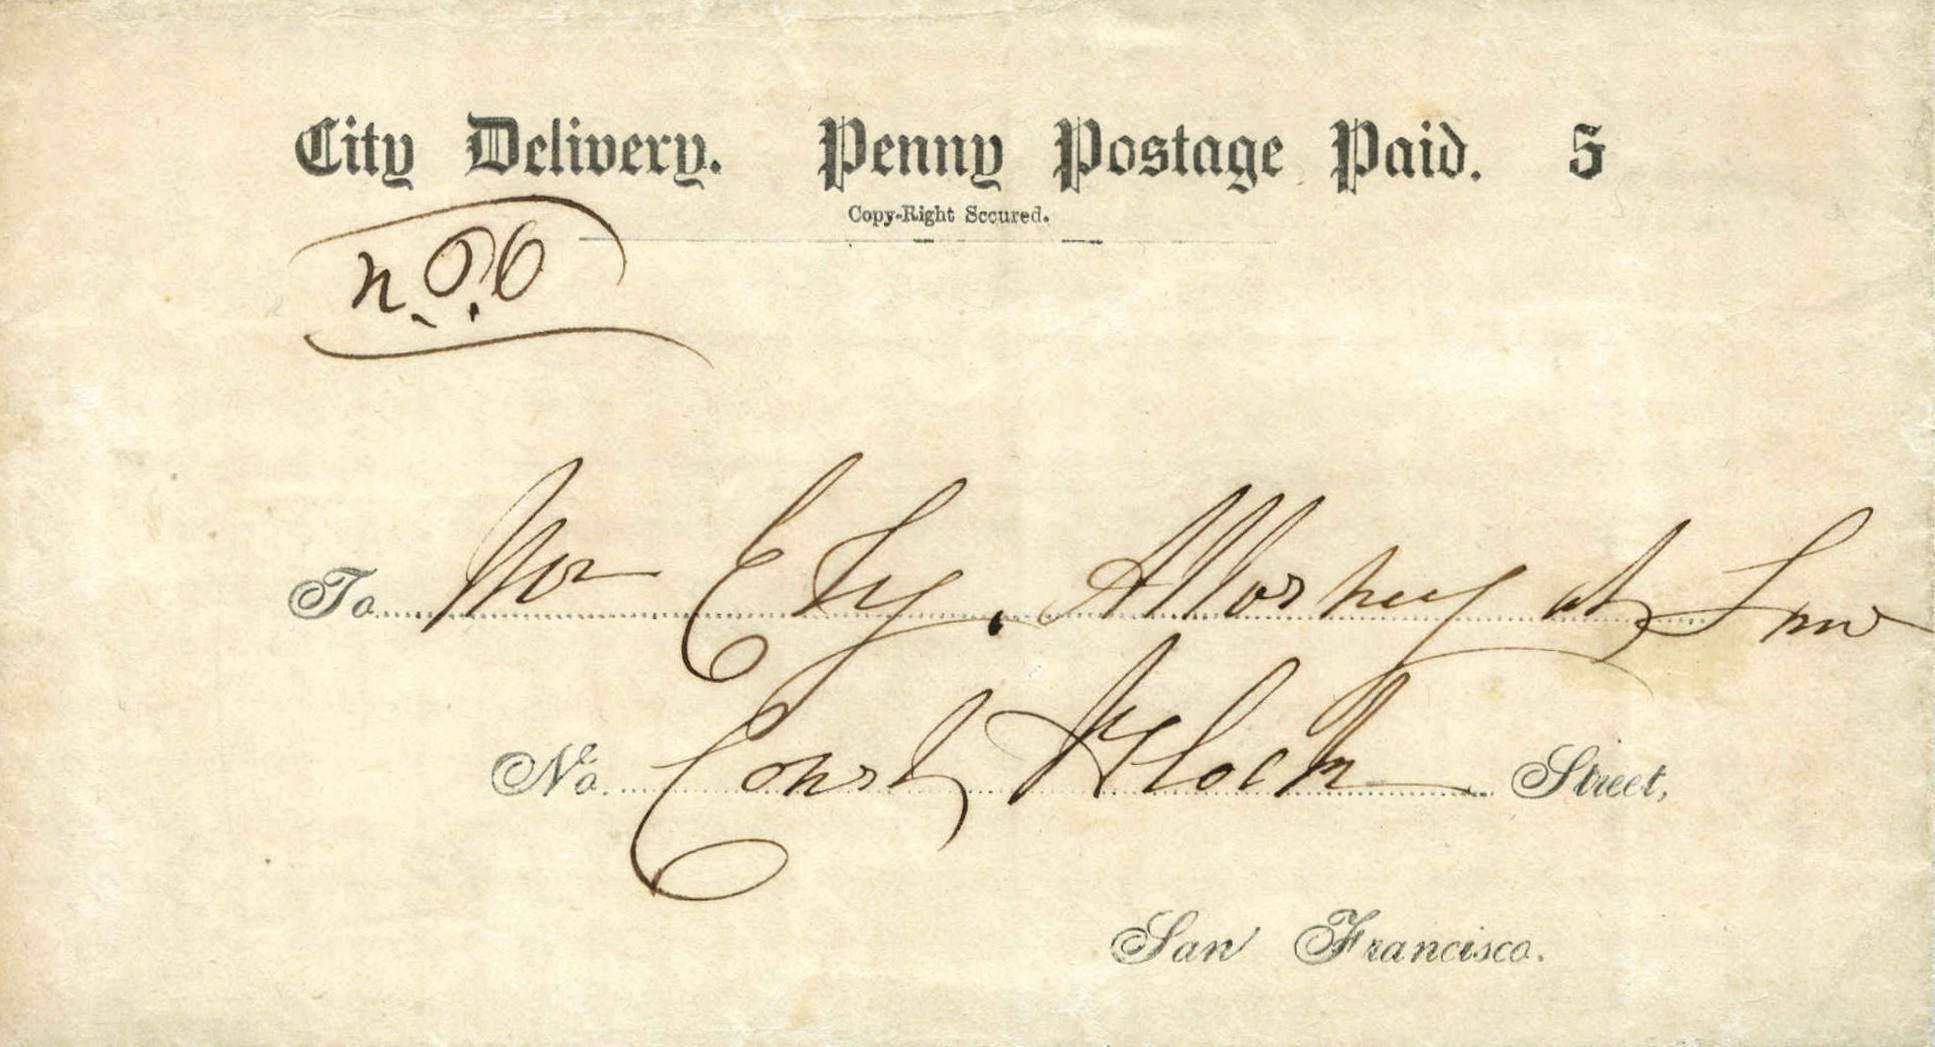 City Delivery. Penny Postage Paid. 5
Copy-Right Secured.
To Mr Attorney at Law
No. Court Block Street,
San Francisco.